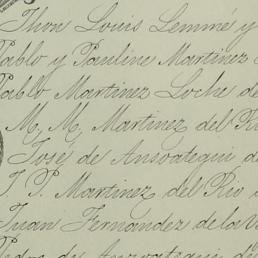 Thon Louis Lemmé y
Pablo y Pauline Martinez
Pablo Martinez Loche de
M. M. Martinez del R
José de Ansoategui d
J. P. Martinez del Rio
Juan Fernandez de la V
Pedro de Ansoategui de